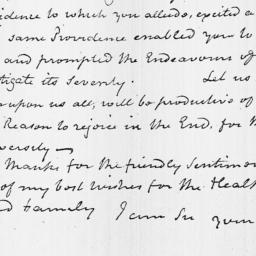 idence to which you allude, excited a
same Providence enabled you to
and prompted the Endeavours of
tigate its Severity. Let us
upon us all, will be productive of
Reason to rejoice in the End, for th
versity —
Thanks for the friendly Sentimen
of my best wishes for the Healt
nd Family I am Sir your